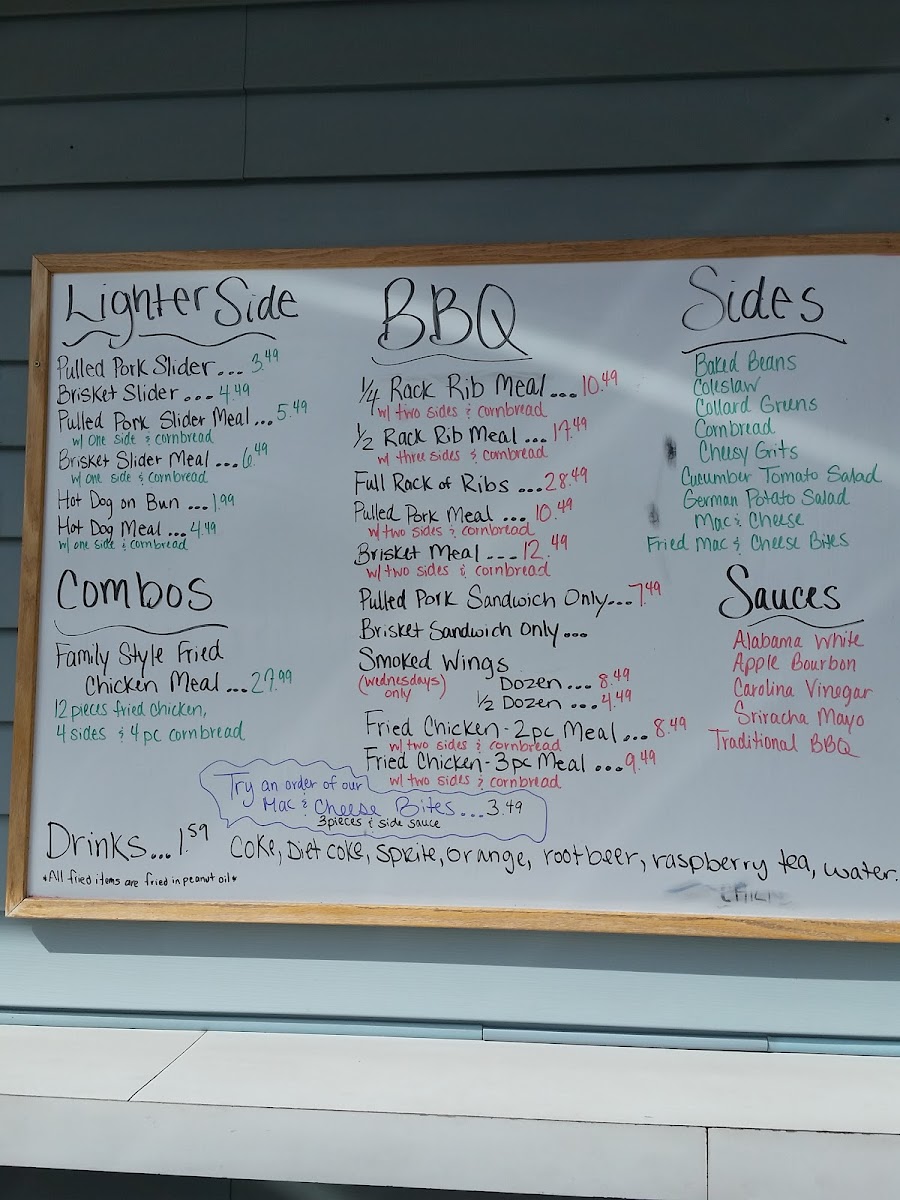 Lighter Side
Pulled Pork Slider... 3.49
Brisket Slider ... 4.49
Pulled Pork Slider Meal ... 5.49
w/ one side & cornbread
Brisket Slider Meal ... 6.49
w/ one side & cornbread
Hot Dog on Bun ... 1.99
Hot Dog Meal ... 4.49
w/ one side & cornbread
Combos
Family Style Fried
Chicken Meal ... 27.99
12 pieces fried chicken,
4 sides & 4 pc cornbread
BBQ
1/4 Rack Rib Meal ... 10.49
w/ two sides & cornbread
1/2 Rack Rib Meal ... 17.49
w/ three sides & cornbread
Full Rack of Ribs ... 28.49
Pulled Pork Meal ... 10.49
w/ two sides & cornbread
Brisket Meal ... 12.49
w/ two sides & cornbread
Pulled Pork Sandwich Only... 7.49
Brisket Sandwich Only ...
Smoked Wings
(Wednesdays only)
Dozen ... 8.49
1/2 Dozen ... 4.49
Fried Chicken - 2pc Meal ... 8.49
w/ two sides & cornbread
Fried Chicken - 3pc Meal ... 9.49
w/ two sides & cornbread
Sides
Baked Beans
Coleslaw
Collard Greens
Cornbread
Cheesy Grits
Cucumber Tomato Salad
German Potato Salad
Mac & Cheese
Fried Mac & Cheese Bites
Sauces
Alabama White
Apple Bourbon
Carolina Vinegar
Sriracha Mayo
Traditional BBQ
Try an order of our
Mac & Cheese Bites... 3.49
3 pieces & side sauce
Drinks... 1.59 Coke, Diet coke, Sprite, orange, rootbeer, raspberry tea, water.
*All fried items are fried in peanut oil*